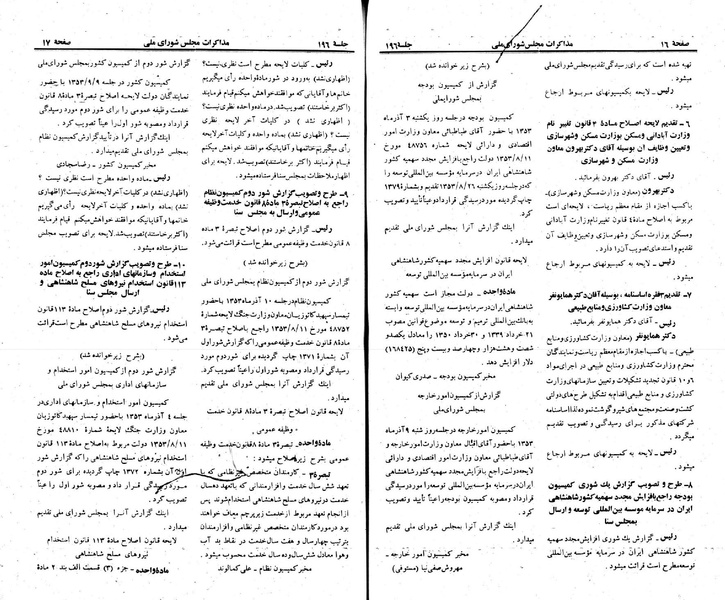 صفحه ۱۶
مذاکرات مجلس شورای ملی
جلسه ۱۹۶
تهیه شده است که برای رسیدگی تقدیم مجلس شورای ملی
میشود.
رئیس ـ لایحه بکمیسیونهای مربوط ارجاع
میشود.
۶ـ تقدیم لایحه اصلاح ماده ۴ قانون تغییر نام
وزارت آبادانی ومسکن بوزارت مسکن وشهرسازی
وتعیین وظایف آن بوسیله آقای دکتر بهرون معاون
وزارت مسکن و شهرسازی
رئیس ـ آقای دکتر بهرون بفرمائید.
دکتر بهرون (معاون وزارت مسکن وشهرسازی)ـ
باکسب اجازه از مقام معظم ریاست، لایحه‌ای است
مربوط به اصلاح ماده ۴ قانون تغییرنام وزارت آبادانی
ومسکن بوزارت مسکن وشهرسازی وتعیین وظایف آن
تقدیم و استدعای تصویب آن را دارم.
رئیس ـ لایحه به کمیسیونهای مربوط ارجاع
میشود.
۷ـ تقدیم ۳ فقره اساسنامه، بوسیله آقای دکتر همایونفر
معاون وزارت کشاورزی ومنابع طبیعی
رئیس ـ آقای دکتر همایونفر بفرمائید.
دکتر همایونفر (معاون وزارت کشاورزی ومنابع
طبیعی) ـ باکسب اجازه از مقام معظم ریاست ونمایندگان
محترم وزارت کشاورزی ومنابع طبیعی در اجرای مواد
۶ و ۱۰ قانون تجدید تشکیلات و تعیین سازمانهای وزارت
کشاورزی و منابع طبیعی اقدام به تشکیل طرح‌های دولتی
کشت وصنعت و مجتمع‌های شیر و گوشت نموده لذا اساسنامه
شرکتهای مذکور برای رسیدگی و تصویب تقدیم
میگردد.
رئیس ـ لایحه به کمیسیونهای مربوط ارجاع
میشود.
۸ـ طرح و تصویب گزارش یک شوری کمیسیون
بودجه راجع بافزایش مجدد سهمیه کشور شاهنشاهی
ایران در سرمایه موسسه بین‌المللی توسعه و ارسال
به مجلس سنا
رئیس ـ گزارش یک شوری افزایش مجدد سهمیه
کشور شاهنشاهی ایران در سرمایه مؤسسه بین‌المللی
توسعه مطرح است قرائت میشود.
(بشرح زیر خوانده شد)
گزارش از کمیسیون بودجه
بمجلس شورایملی
کمیسیون بودجه در جلسه روز یکشنبه ۳ آذرماه
۱۳۵۳ با حضور آقای طباطبائی معاون وزارت امور
اقتصادی و دارائی لایحه شماره ۴۸۷۵۶ مورخ
۱۳۵۳/۸/۱۱ دولت راجع بافزایش مجدد سهمیه کشور
که در جلسه روز یکشنبه ۱۳۵۳/۸/۲۶ تقدیم و بشماره ۱۳۷۹
چاپ گردیده مورد رسیدگی قرارداد و عیناً تأیید و تصویب
کرد.
اینک گزارش آنرا بمجلس شورای ملی تقدیم
میدارد.
لایحه قانون افزایش مجدد سهمیه کشور شاهنشاهی
ایران در سرمایه مؤسسه بین‌المللی توسعه
ماده واحده ـ دولت مجاز است سهمیه کشور
شاهنشاهی ایران در سرمایه مؤسسه بین‌المللی توسعه وابسته
به بانک بین‌المللی ترمیم و توسعه موضوع قوانین مصوب
۲۱ خرداد ۱۳۳۹ و ۳۰ خرداد ۱۳۵۰ را معادل یکصدو
شصت وهشت هزار وچهارصد بیست وپنج (۱۶۸۴۲۵)
دلار افزایش دهد.
مخبر کمیسیون بودجه ـ صدری کیوان
گزارش از کمیسیون امور خارجه
بمجلس شورای ملی
کمیسیون امور خارجه در جلسه روز شنبه ۹ آذر ماه
۱۳۵۳ با حضور آقای اقبال معاون وزارت امور خارجه و
آقای طباطبائی معاون وزارت امور اقتصادی و دارائی
لایحه دولت راجع بافزایش مجدد سهمیه کشور شاهنشاهی
ایران در سرمایه مؤسسه بین‌المللی توسعه را مورد رسیدگی
قرارداد و مصوبه کمیسیون بودجه را عیناً تأیید و تصویب
کرد.
اینک گزارش آنرا به مجلس شورای ملی تقدیم
میدارد.
مخبر کمیسیون امور خارجه ـ
مهروش صفی‌نیا (مستوفی)
جلسه ۱۹۶
مذاکرات مجلس شورای ملی
صفحه ۱۷
رئیس ـ کلیات لایحه مطرح است نظری نیست؟
(اظهاری نشد) به ورود در شور ماده واحده رأی میگیریم
خانمها و آقایانی که موافقند خواهش میکنم قیام فرمایند
(اکثر برخاستند) تصویب شد. ماده واحده مطرح است
(اظهاری نشد) در کلیات آخر لایحه نظری
نیست؟ (اظهاری نشد) به ماده واحده و کلیات آخر لایحه
رأی میگیریم خانمها و آقایانیکه موافقند خواهش میکنم
قیام فرمایند (اکثر برخاستند) تصویب شد. لایحه برای
اظهار ملاحظات بمجلس سنا فرستاده میشود.
۹ـ طرح وتصویب گزارش شور دوم کمیسیون نظام
راجع به اصلاح تبصره ۳ ماده ۸ قانون خدمت وظیفه
عمومی و ارسال به مجلس سنا
رئیس ـ گزارش شور دوم اصلاح تبصره ۳ ماده
۸ قانون خدمت وظیفه عمومی مطرح است قرائت می‌شود.
(بشرح زیر خوانده شد)
گزارش شور دوم از کمیسیون نظام به مجلس شورای ملی
کمیسیون نظام در جلسه ۱۰ آذر ماه ۱۳۵۳ با حضور
تیمسار سپهبد کاتوزیان معاون وزارت جنگ لایحه شماره
۴۸۷۵۲ مورخ ۱۳۵۳/۸/۱۱ راجع به اصلاح تبصره ۳
ماده ۸ قانون خدمت وظیفه عمومی را که گزارش شور اول
آن بشماره ۱۳۷۱ چاپ گردیده برای شور دوم مورد
رسیدگی قرارداد و مصوبه شور اول را عیناً تأیید و تصویب
کرد.
اینک گزارش آنرا بمجلس شورای ملی تقدیم
میدارد.
لایحه قانون اصلاح تبصره ۳ ماده ۸ قانون خدمت
وظیفه عمومی
ماده واحده ـ تبصره ۳ ماده ۸ قانون خدمت وظیفه
عمومی بشرح زیر اصلاح میشود:
تبصره ۳ ـ کارمندان متخصص غیرنظامی که با
تعهد شش سال خدمت و افزارمندانی که با تعهد ده سال
خدمت در نیروهای مسلح شاهنشاهی استخدام شوند پس
از انجام تعهد مربوط از خدمت زیر پرچم معاف خواهند
بود در مورد کارمندان متخصص غیرنظامی و افزارمندان
بترتیب چهار سال و هفت سال خدمت در نقاط بد آب
وهوا معادل شش سال وده سال خدمت محسوب میشود.
مخبر کمیسیون نظام ـ علی کمالوند
گزارش شور دوم از کمیسیون کشور بمجلس شورای ملی
کمیسیون کشور در جلسه ۱۳۵۳/۹/۹ با حضور
نمایندگان دولت لایحه اصلاح تبصره ۳ ماده ۸ قانون
خدمت وظیفه عمومی را برای شور دوم مورد رسیدگی
قرارداد و مصوبه شور اول را عیناً تصویب کرد.
اینک گزارش آنرا در تأیید گزارش کمیسیون نظام
به مجلس شورای ملی تقدیم میدارد.
مخبر کمیسیون کشور ـ رضا سجادی
رئیس ـ ماده واحده مطرح است نظری نیست؟
(اظهاری نشد) در کلیات آخر لایحه نظری نیست؟ (اظهاری
نشد) به ماده واحده و کلیات آخر لایحه رأی می‌گیریم
خانمها و آقایانیکه موافقند خواهش میکنم قیام فرمایند
(اکثر برخاستند). تصویب شد. لایحه برای تصویب مجلس
سنا فرستاده میشود.
۱۰ـ طرح وتصویب گزارش شور دوم کمیسیون امور
استخدام و سازمانهای اداری راجع به اصلاح ماده
۱۱۳ قانون استخدام نیروهای مسلح شاهنشاهی و
ارسال مجلس سنا
رئیس ـ گزارش شور دوم اصلاح ماده ۱۱۳ قانون
استخدام نیروهای مسلح شاهنشاهی مطرح است قرائت
میشود.
(بشرح زیر خوانده شد)
گزارش شور دوم از کمیسیون امور استخدام و
سازمانهای اداری به مجلس شورای ملی
کمیسیون امور استخدام و سازمانهای اداری در
جلسه ۴ آذر ماه ۱۳۵۳ با حضور تیمسار سپهبد کاتوزیان
معاون وزارت جنگ لایحه شماره ۴۸۸۱۰ مورخ
۱۳۵۳/۸/۱۱ دولت مربوط به اصلاح ماده ۱۱۳ قانون
استخدام نیروهای مسلح شاهنشاهی را که گزارش شور
اول آن بشماره ۱۳۷۲ چاپ گردیده برای شور دوم
مورد رسیدگی قرار داد و مصوبه شور اول را عیناً
تصویب کرد.
اینک گزارش آنرا به مجلس شورای ملی تقدیم
میدارد.
لایحه قانون اصلاح ماده ۱۱۳ قانون استخدام
نیروهای مسلح شاهنشاهی
ماده واحده ـ جزء (۳) قسمت الف بند ۲ ماده